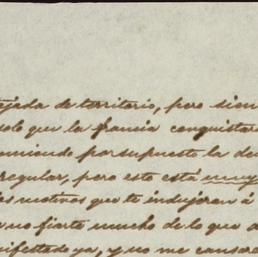 ejada de territorio, pero sien
solo que la francia conquistar
omiendo por supuesto la de
regular, pero esto está muy
los motivos que te indujeron á
no fiarte mucho de lo que
nifestado ya, y no me cansaré